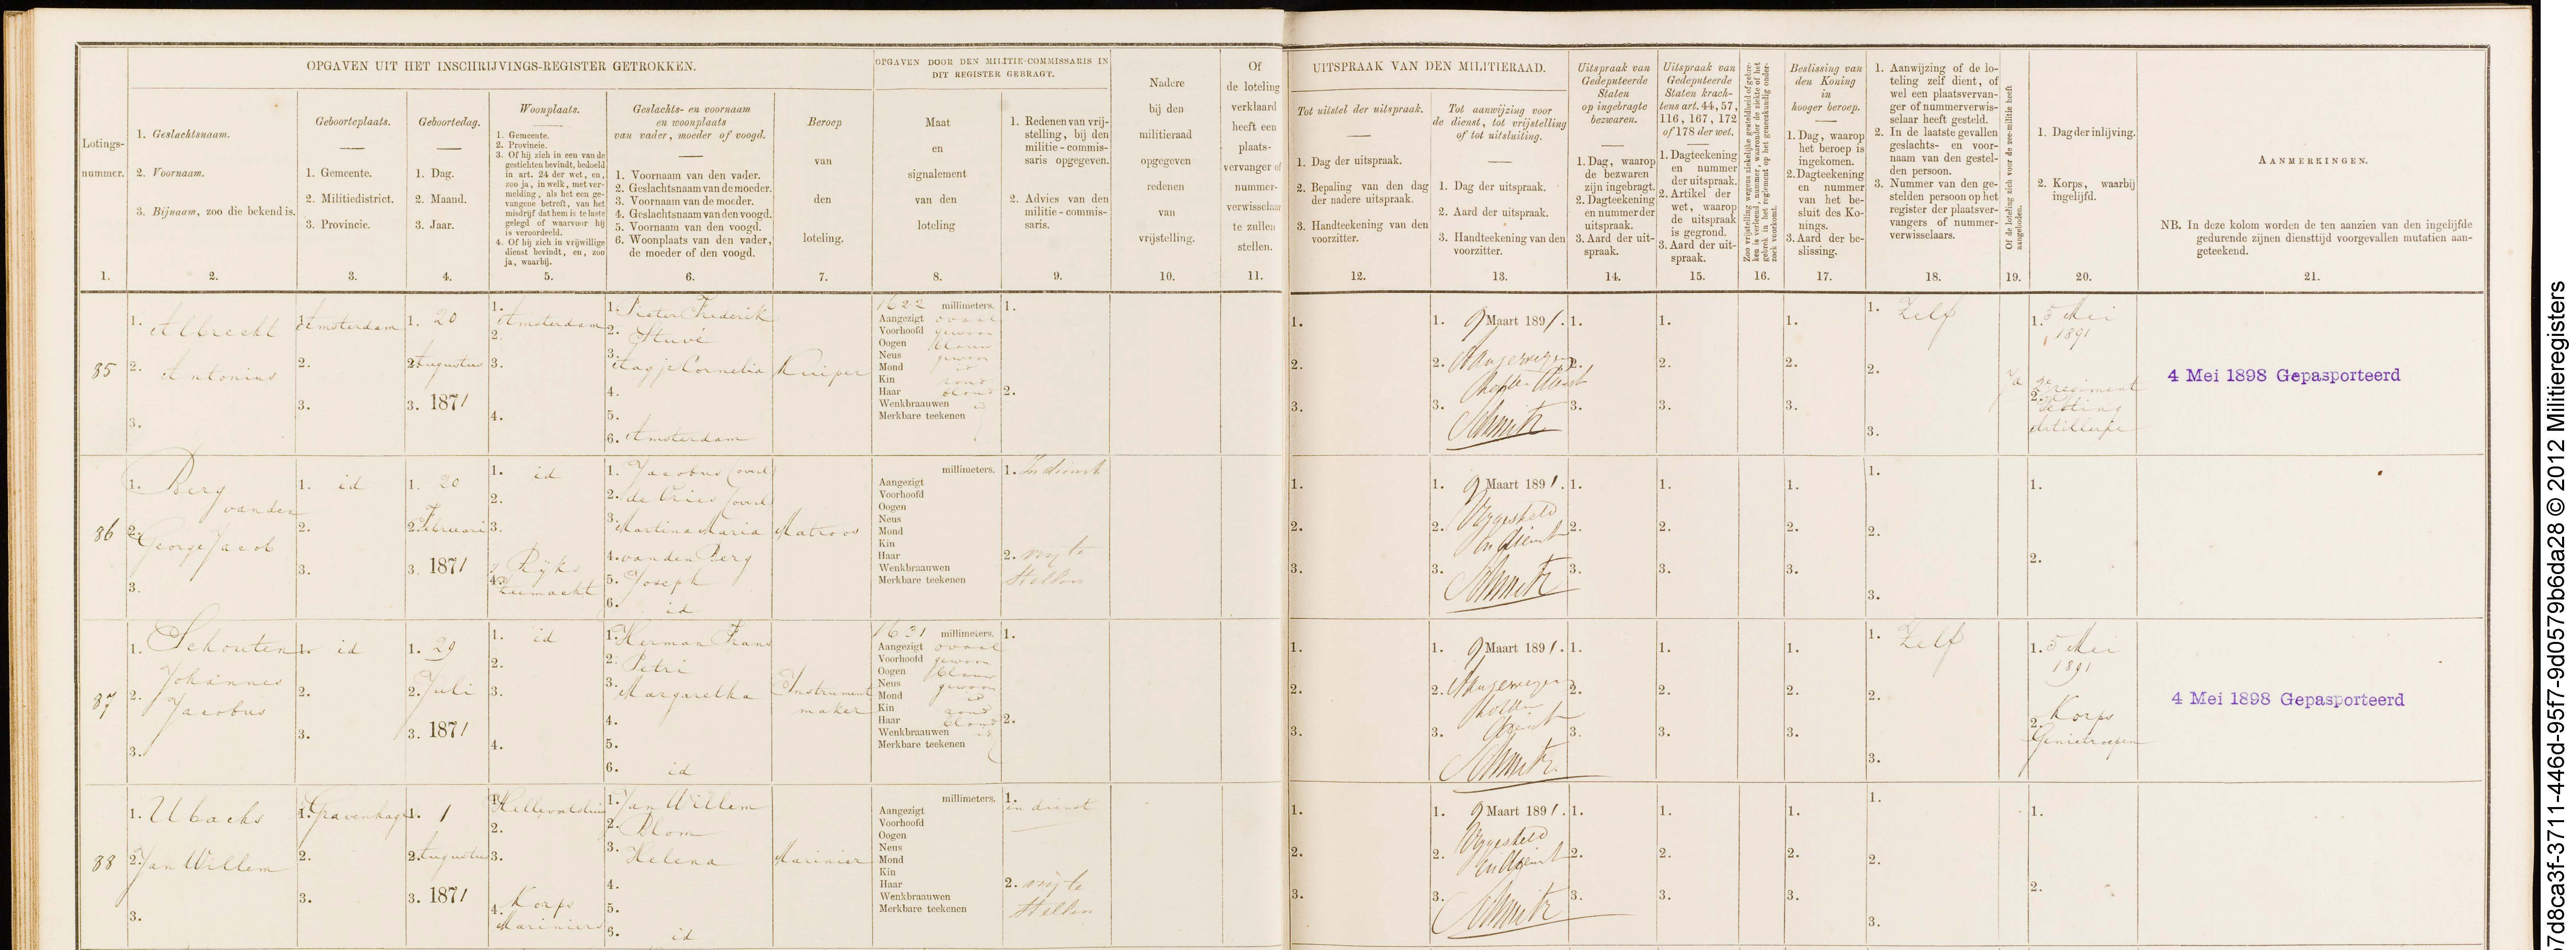 OPGAVEN UIT HET INSCHRIJVINGS-REGISTER GETROKKEN.
OPGAVEN DOOR DEN MILITIE-COMMISSARIS IN
DIT REGISTER GEBRAGT.
Lotings-
nummer.
1.
1. Geslachtsnaam.
2. Voornaam.
3. Bijnaam, zoo die bekend is.
2.
Geboorteplaats.
1. Gemeente.
2. Militiedistrict.
3. Provincie.
3.
Geboortedag.
1. Dag.
2. Maand.
3. Jaar.
4.
Woonplaats.
1. Gemeente.
2. Provincie.
3. Of hij zich in een van de
gestichten bevindt, bedoeld
in art. 24 der wet, en,
zoo ja, in welk, met ver-
melding, als het een ge-
vangene betreft, van het
misdrijf dat hem is te laste
gelegd of waarvoor hij
is veroordeeld.
4. Of hij zich in vrijwillige
dienst bevindt, en, zoo
ja, waarbij.
5.
Geslachts- en voornaam
en woonplaats
van vader, moeder of voogd.
1. Voornaam van den vader.
2. Geslachtsnaam van de moeder.
3. Voornaam van de moeder.
4. Geslachtsnaam van den voogd.
5. Voornaam van den voogd.
6. Woonplaats van den vader,
de moeder of den voogd.
6.
Beroep
van
den
loteling.
7.
Maat
en
signalement
van den
loteling
8.
1. Redenen van vrij-
stelling, bij den
militie-commis-
saris opgegeven.
2. Advies van den
militie-commis-
saris.
9.
Nadere
bij den
militieraad
opgegeven
redenen
van
vrijstelling.
10.
Of
de loteling
verklaard
heeft een
plaats-
vervanger of
nummer-
verwisselaar
te zullen
stellen.
11.
UITSPRAAK VAN DEN MILITIERAAD.
Tot uitstel der uitspraak.
1. Dag der uitspraak.
2. Bepaling van den dag
der nadere uitspraak.
3. Handteekening van den
voorzitter.
12.
Tot aanwijzing voor
de dienst, tot vrijstelling
of tot uitsluiting.
1. Dag der uitspraak.
2. Aard der uitspraak.
3. Handteekening van den
voorzitter.
13.
Uitspraak van
Gedeputeerde
Staten
op ingebragte
bezwaren.
1. Dag, waarop
de bezwaren
zijn ingebragt.
2. Dagteekening
en nummer der
uitspraak.
3. Aard der uit-
spraak.
14.
Uitspraak van
Gedeputeerde
Staten krach-
tens art. 44, 57,
116, 167, 172
of 178 der wet.
1. Dagteekening
en nummer
der uitspraak.
2. Artikel der
wet, waarop
de uitspraak
is gegrond.
3. Aard der uit-
spraak.
15.
16.
Beslissing van
den Koning
in
hooger beroep.
1. Dag, waarop
het beroep is
ingekomen.
2. Dagteekening
en nummer
van het be-
sluit des Ko-
nings.
3. Aard der be-
slissing.
17.
1. Aanwijzing of de lo-
teling zelf dient, of
wel een plaatsvervan-
ger of nummerverwis-
selaar heeft gesteld.
2. In de laatste gevallen
geslachts- en voor-
naam van den gestel-
den persoon.
3. Nummer van den ge-
stelden persoon op het
register der plaatsver-
vangers of nummer-
verwisselaars.
18.
Of de loteling zich voor de zee-militie heeft
aangeboden.
19.
1. Dag der inlijving.
2. Korps, waarbij
ingelijfd.
20.
AANMERKINGEN.
NB. In deze kolom worden de ten aanzien van den ingelijfde
gedurende zijnen diensttijd voorgevallen mutatien aan-
geteekend.
21.
85
1. Albrecht
2. Antonius
3.
1. Amsterdam
2.
3.
1. 20
2. Augustus
3. 1871
1. Amsterdam
2.
3.
4.
1. Pieter Frederik
2. Stuvé
3. Aagje Cornelia
4.
5.
6. Amsterdam
Kuiper
1622 millimeters.
Aangezigt ovaal
Voorhoofd gewoon
Oogen blauw
Neus gewoon
Mond id
Kin rond
Haar blond
Wenkbraauwen id
Merkbare teekenen
1.
2.
1.
2.
3.
1. 9 Maart 1891.
2. Aangewezen
voor den dienst
3. Schmitz
1.
2.
3.
1.
2.
3.
1.
2.
3.
1. Zelf
2.
3.
Ja
1. 5 Mei
1891
2. 2e regiment
Vesting
Artillerie
4 Mei 1898 Gepasporteerd
86
1. Berg
van den
2. George Jacob
3.
1. id
2.
3.
1. 20
2. Februari
3. 1871
1. id
2.
3.
4. Rijks
Zeemacht
1. Jacobus (overl)
2. de Vries (overl)
3. Martina Maria
4. van den Berg
5. Joseph
6. id
Matroos
millimeters.
Aangezigt
Voorhoofd
Oogen
Neus
Mond
Kin
Haar
Wenkbraauwen
Merkbare teekenen
1. In dienst
2. vrij te
stellen
1.
2.
3.
1. 9 Maart 1891.
2. Vrijgesteld
en dienst
3. Schmitz
1.
2.
3.
1.
2.
3.
1.
2.
3.
1.
2.
3.
1.
2.
87
1. Schouten
2. Johannes
Jacobus
3.
1. id
2.
3.
1. 29
2. Juli
3. 1871
1. id
2.
3.
4.
1. Herman Frans
2. Petri
3. Margaretha
4.
5.
6. id
Instrument
maker
1631 millimeters.
Aangezigt ovaal
Voorhoofd gewoon
Oogen blauw
Neus gewoon
Mond id
Kin rond
Haar blond
Wenkbraauwen id
Merkbare teekenen
1.
2.
1.
2.
3.
1. 9 Maart 1891.
2. Aangewezen
voor den
dienst
3. Schmitz
1.
2.
3.
1.
2.
3.
1.
2.
3.
1. Zelf
2.
3.
1. 5 Mei
1891
2. Korps
Genietroepen
4 Mei 1898 Gepasporteerd
88
1. Ubachs
2. Jan Willem
3.
1. 'Gravenhage
2.
3.
1. 1
2. Augustus
3. 1871
1. Hellevoetsluis
2.
3.
4. Korps
Mariniers
1. Jan Willem
2. Blom
3. Helena
4.
5.
6. id
Marinier
millimeters.
Aangezigt
Voorhoofd
Oogen
Neus
Mond
Kin
Haar
Wenkbraauwen
Merkbare teekenen
1. in dienst
2. vrij te
stellen
1.
2.
3.
1. 9 Maart 1891.
2. Vrijgesteld
en dienst
3. Schmitz
1.
2.
3.
1.
2.
3.
1.
2.
3.
1.
2.
3.
1.
2.
7d8ca3f-3711-446d-95f7-9d0579b6da28 © 2012 Militieregisters